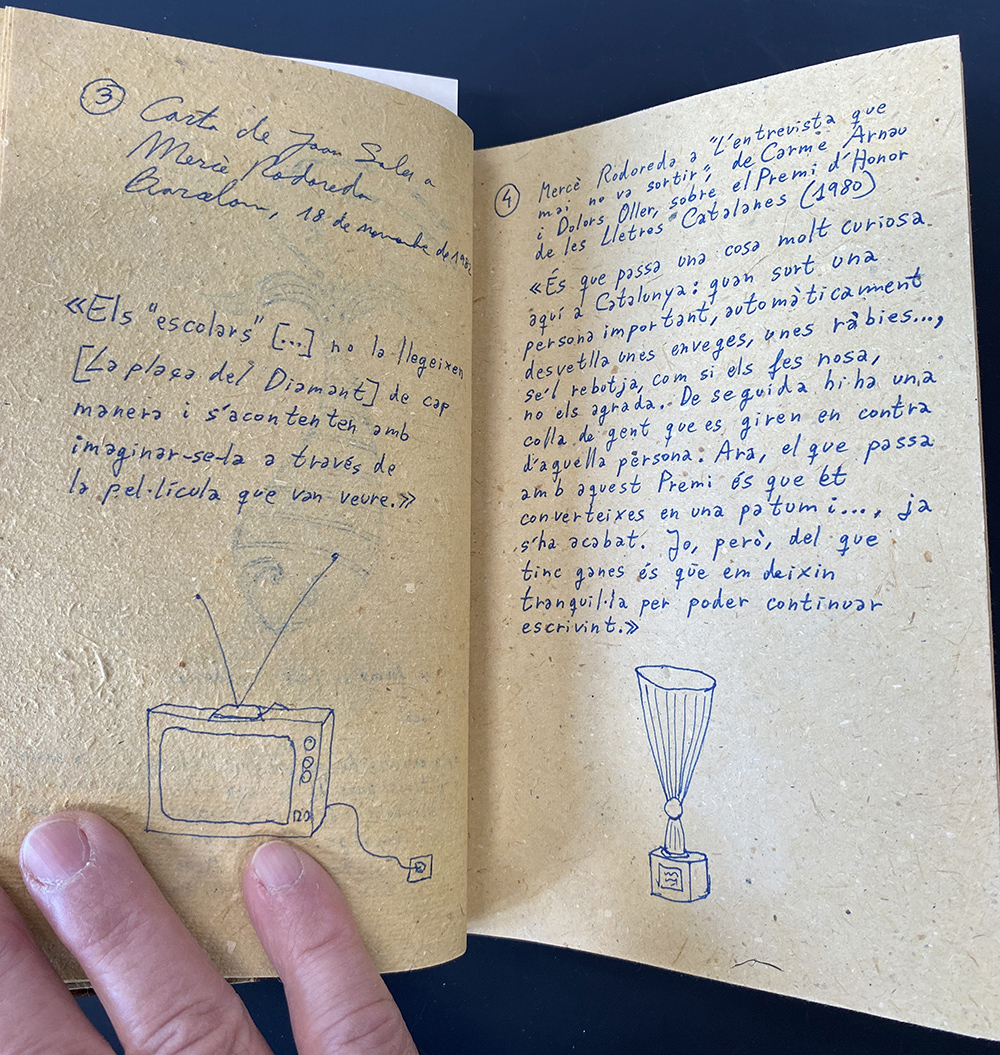 3
Carta de Joan Sales a
Mercè Rodoreda
Barcelona, 18 de novembre de 1982
«Els "escolars" [...] no la llegeixen
[La plaça del Diamant] de cap
manera i s'acontenten amb
imaginar-se-la a través de
la pel·lícula que van veure.»
4
Mercè Rodoreda a "L'entrevista que
mai no va sortir", de Carme Arnau
i Dolors Oller, sobre el Premi d'Honor
de les Lletres Catalanes (1980)
«És que passa una cosa molt curiosa
aquí a Catalunya: quan surt una
persona important, automàticament
desvetlla unes enveges, unes ràbies...,
se'l rebutja, com si els fes nosa,
no els agrada. De seguida hi ha una
colla de gent que es giren en contra
d'aquella persona. Ara, el que passa
amb aquest Premi és que et
converteixes en una patum i..., ja
s'ha acabat. Jo, però, del que
tinc ganes és que em deixin
tranquil·la per poder continuar
escrivint.»